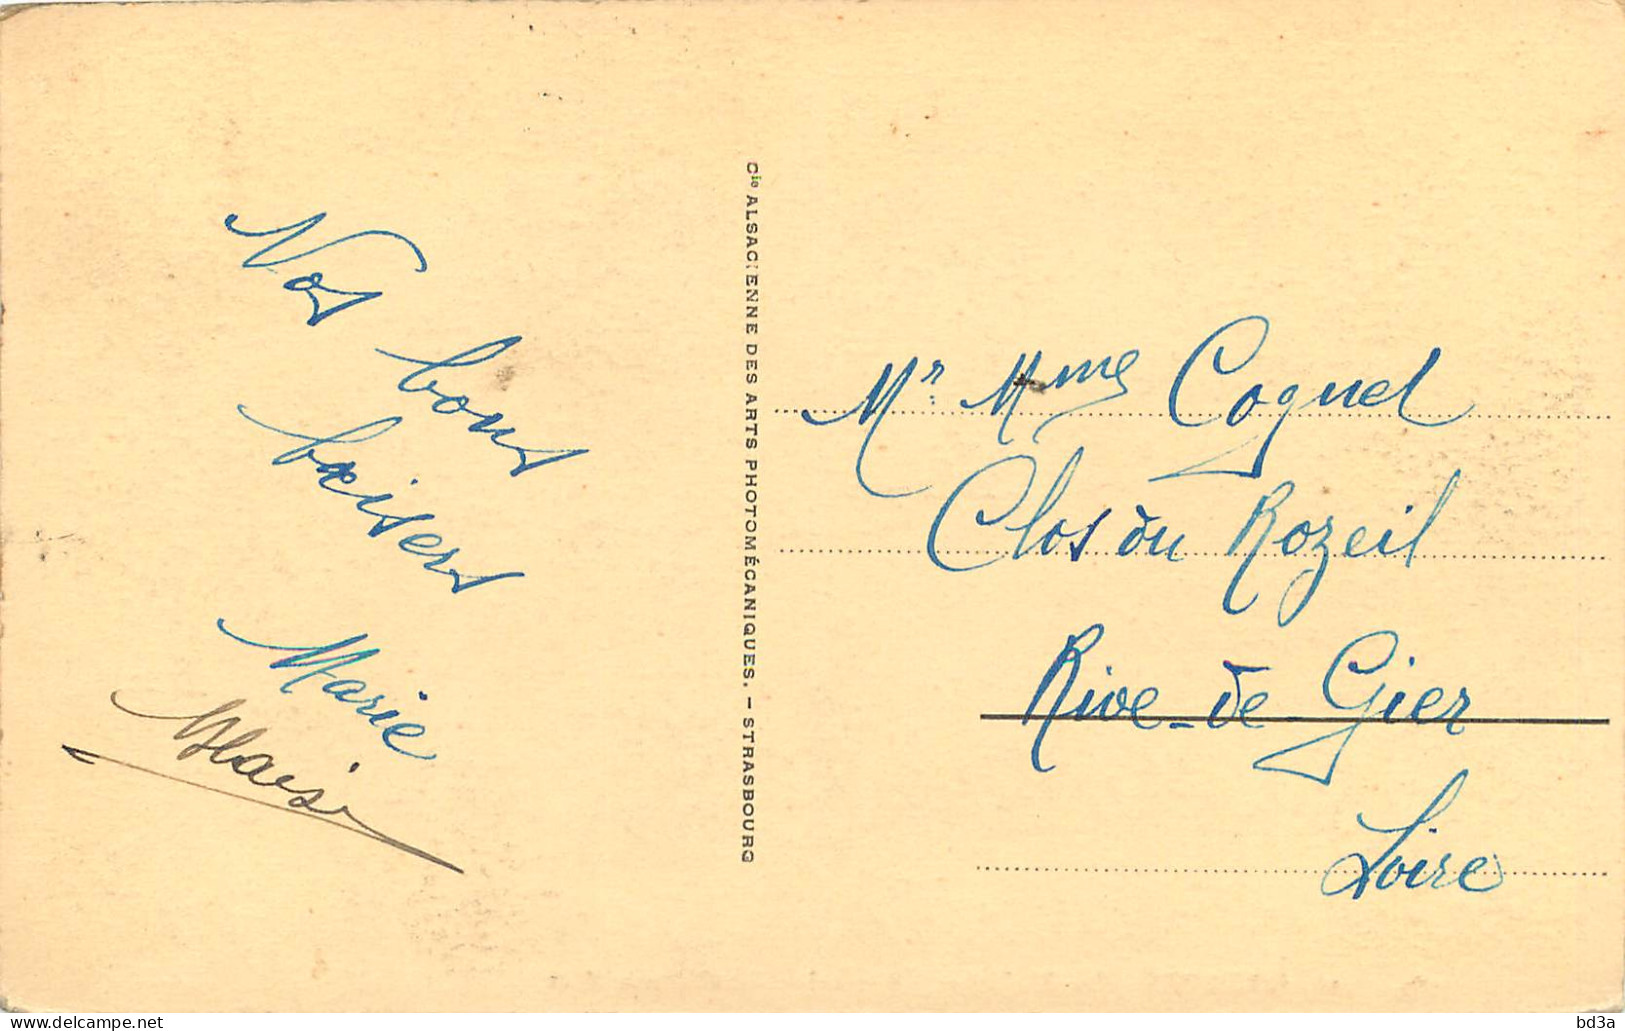 Nos bons
baisers
Marie
Blaise
Cie ALSACIENNE DES ARTS PHOTOMÉCANIQUES. – STRASBOURG
Mr Mme Coquel
Clos du Rozeil
Rive-de-Gier
Loire
delcampe.net
bd3a